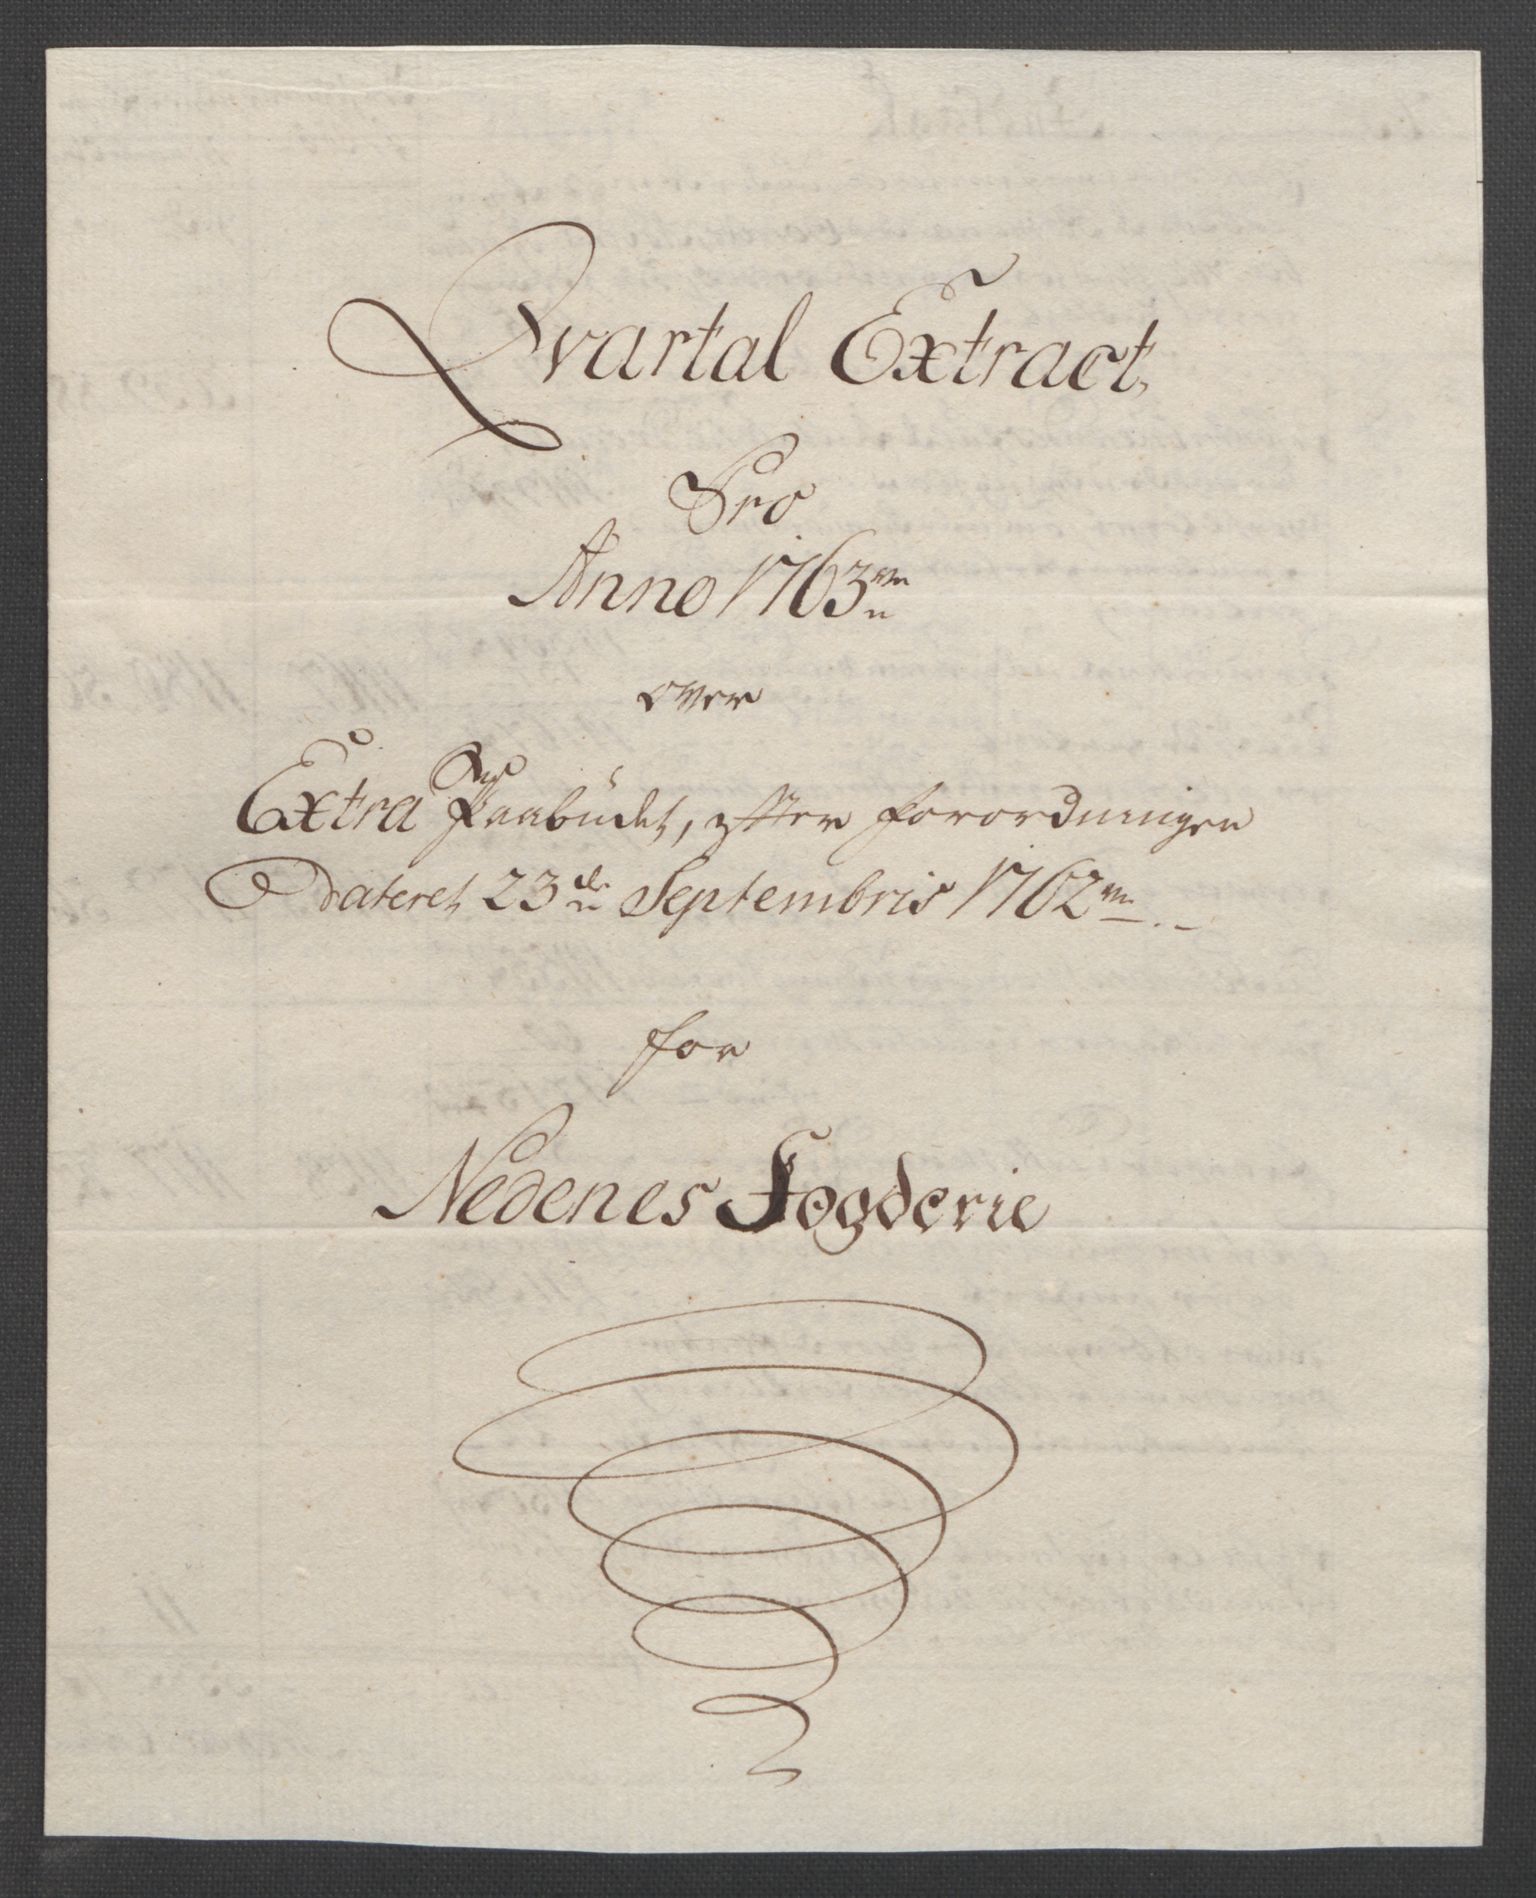 Qvartal Extract,
Pro
Anno 1763
over
Extra Paabudet, efter forordningen
Dateret 23de Septembris 1762
for
Nedenes Fogderie